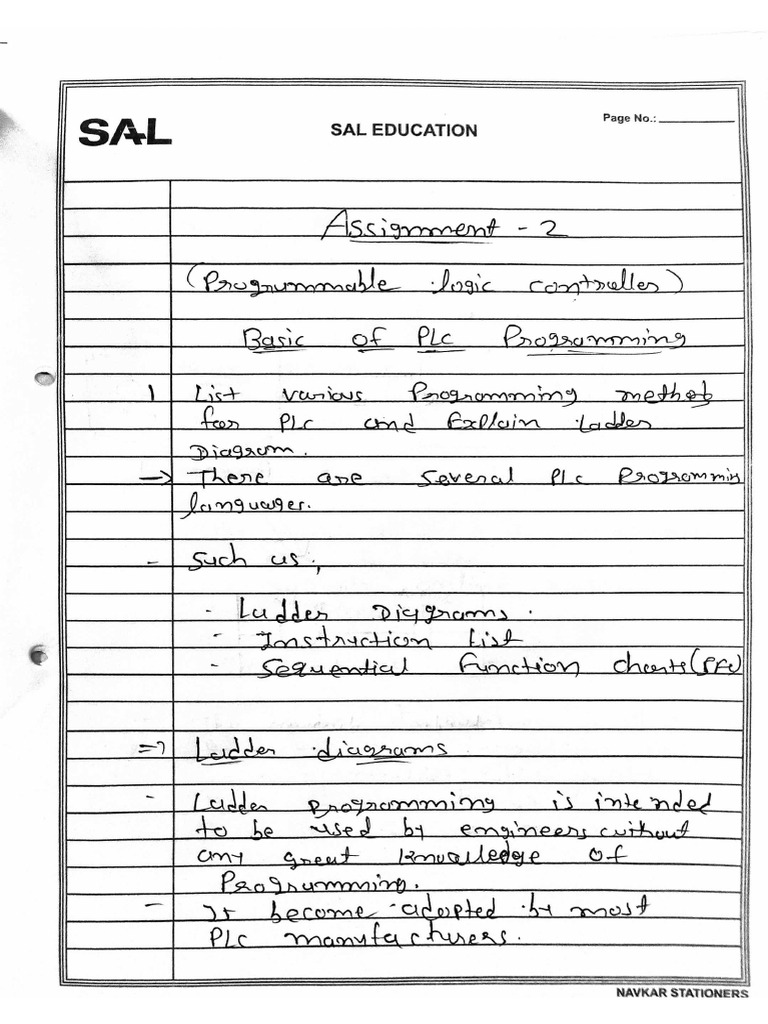 SAL
SAL EDUCATION
Page No.:
Assignment - 2
(Programmable logic controller)
Basic of PLC Programming
1 List various Programming methods
for PLC and Explain Ladder
Diagram.
→ There are several PLC Programming
languages.
- Such us,
- Ladder Diagrams.
- Instruction List
- Sequential Function charts (SFC)
=> Ladder diagrams
- Ladder programming is intended
to be used by engineers without
any great knowledge of
Programming.
- It become adopted by most
PLC manufacturers.
NAVKAR STATIONERS